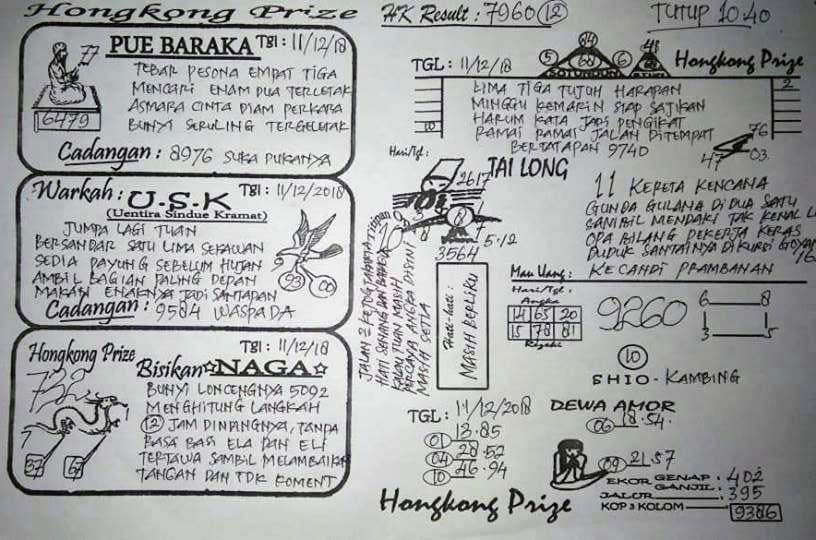 Hongkong Prize
HK Result : 7960 (12)
TUTUP 10.40
PUE BARAKA TGl : 11/12/18
77
TEBAR PESONA EMPAT TIGA
MENCARI ENAM DUA TERLETAK
ASMARA CINTA DIAM PERKARA
BUNYI SERULING TERGELETAK
6479
Cadangan : 8976 SUKA DUKANYA
Warkah : U-S-K TGl : 11/12/2018
(Uentira Sindue Kramat)
JUMPA LAGI TUAN
BERSANDAR SATU LIMA SEKAWAN
SEDIA PAYUNG SEBELUM HUJAN
AMBIL BAGIAN PALING DEPAN
MAKAN ENAKNYA JADI SANTAPAN
93
Cadangan : 9584 WASPADA
Hongkong Prize TGl : 11/12/18
Bisikan NAGA
732
BUNYI LONCENGNYA 5092
MENGHITUNG LANGKAH
(12) JAM DINDINGNYA, TANDA
BASA BASI ELA DAN ELI
TERTAWA SAMBIL MELAMBAIKAN
TANGAN DAN TDK KOMENT
37 67
TGL : 11/12/18
5 68 6
SOTUNDUN
Hongkong Prize
2
LIMA TIGA TUJUH HARAPAN
MINGGU KEMARIN SIAP SAJIKAN
HARUM KATA JADI PENGIKAT
10 RAMAI RAMAI JALAN DITEMPAT
BERTATAPAN 9740
76
47 03
Hari/Tgl :
JAI LONG
2617
5.12
3564
HATI SENANG DAN BAHAGIA
KALAU TUAN MASIH
PERCAYA ANGKA DISINI
MASIH SETIA
Hati-hati :
MASIH BERLIKU
11 KERETA KENCANA
GUNDA GULANA DI DUA SATU
SAMBIL MENDAKI TAK KENAL L
OPA BILANG PEKERJA KERAS
DUDUK SANTAINYA DI KURSI GOYANG
KECANDI PRAMBANAN
Mau Uang :
Hari/Tgl :
Angka
14 65 20
15 78 81
Rejeki
9260
6 8
3 5
(10)
SHIO - KAMBING
TGL : 11/12/2018
01 13.85
04 28.52
10 46.94
DEWA AMOR
06 18.54
09 21.57
EKOR GENAP : 402
GANJIL : 395
JALUR
KOP 2 KOLOM 9386
Hongkong Prize